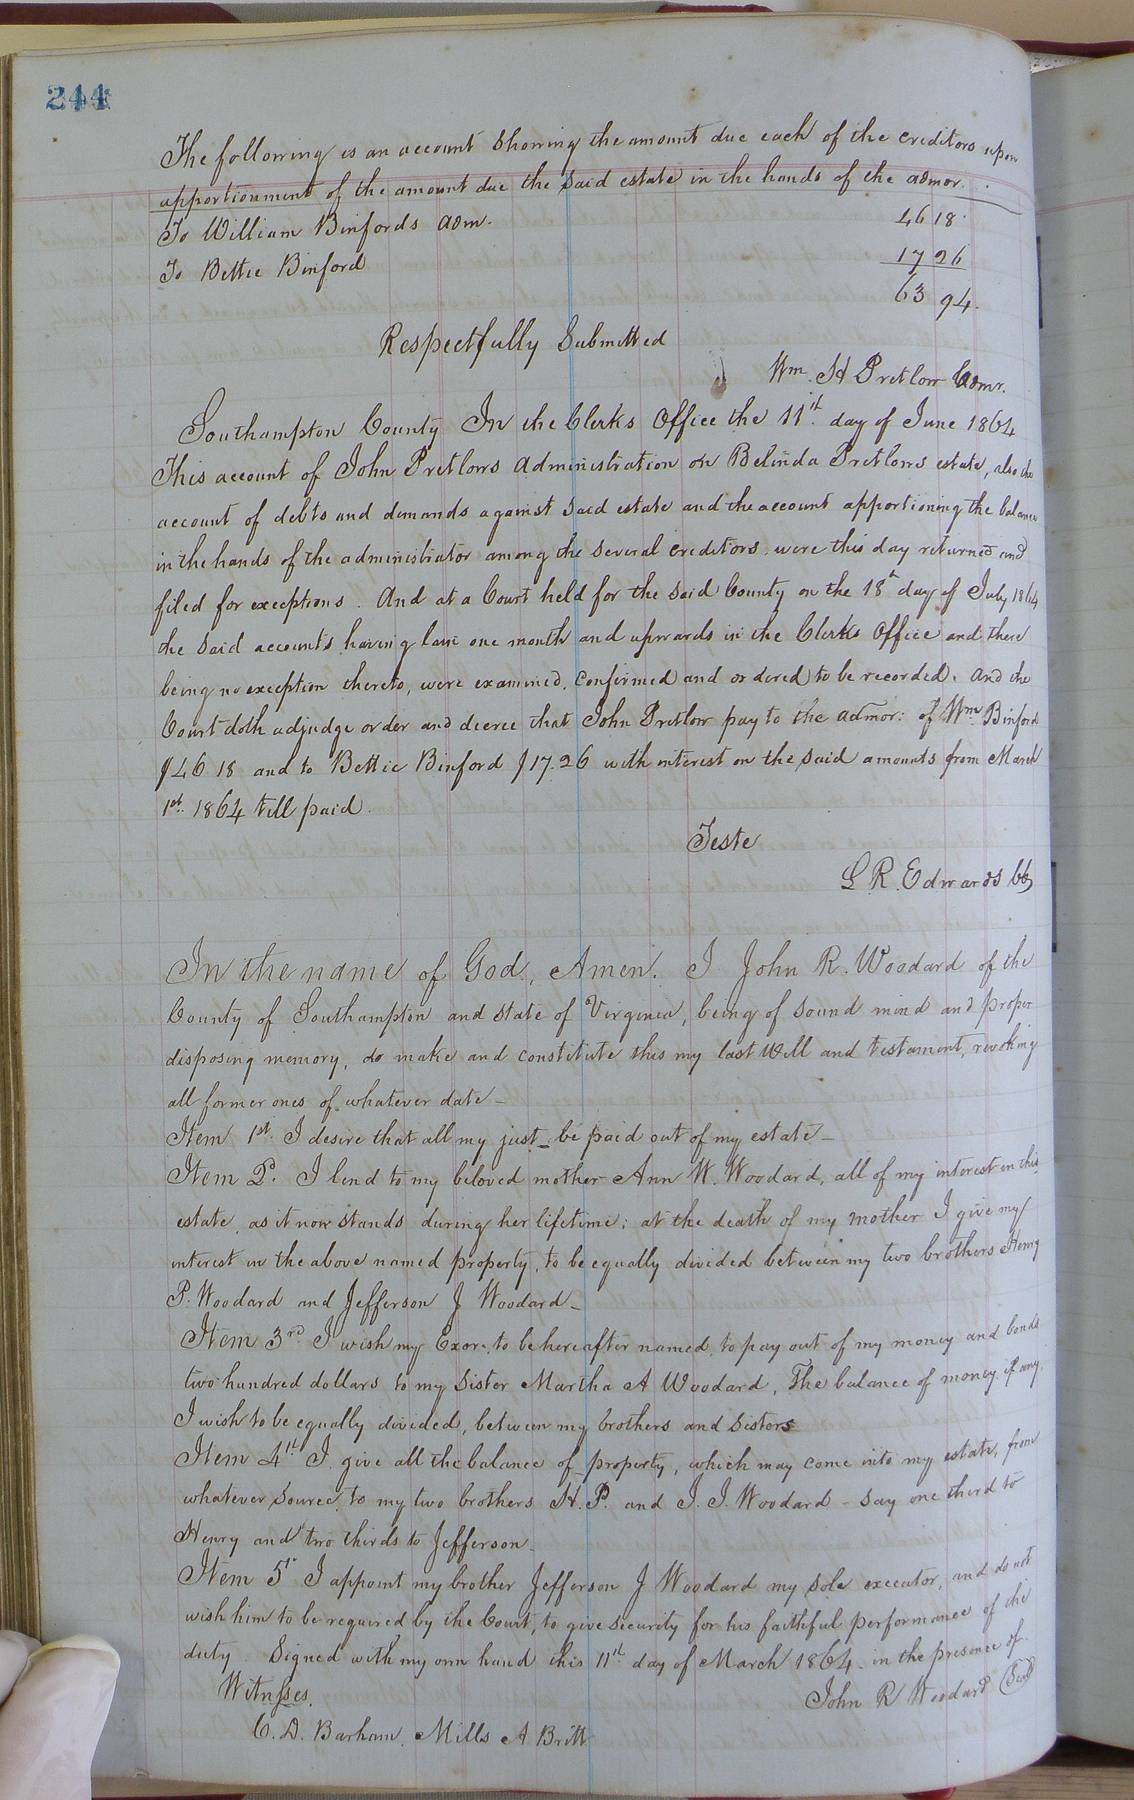 244
The following is an account Showing the amount due each of the creditors upon
apportionment of the amount due the said estate in the hands of the admor.
To William Binfords adm. 46 18
To Bettie Binford 17 26
63 94.
Respectfully Submitted
Wm. H Pretlow Comr.
Southampton County In the Clerks Office the 11th day of June 1864
This account of John Pretlows administration on Belinda Pretlows estate, also the
account of debts and demands against said estate and the account apportioning the balance
in the hands of the administrator among the several creditors were this day returned and
filed for exceptions. And at a Court held for the said County on the 18th day of July 1864
the said accounts having lain one month and upwards in the Clerks Office and there
being no exception thereto, were examined, confirmed and ordered to be recorded. And the
Court doth adjudge order and decree that John Pretlow pay to the admor: of Wm Binford
$46.18 and to Bettie Binford $17.26 with interest on the said amounts from March
1st 1864 till paid.
Teste
L R. Edwards CC
In the name of God, Amen. I John R. Woodard of the
County of Southampton and state of Virginia, being of sound mind and proper
disposing memory, do make and constitute this my last Will and testament, revoking
all former ones of whatever date_
Item 1st. I desire that all my just _ be paid out of my estate_
Item 2. I lend to my beloved mother Ann W. Woodard, all of my interest in this
estate as it now stands during her lifetime; at the death of my mother I give my
interest in the above named property, to be equally divided between my two brothers Henry
P. Woodard and Jefferson J Woodard_
Item 3rd I wish my Exor. to be hereafter named, to pay out of my money and bonds
two hundred dollars to my sister Martha A Woodard, The balance of money if any
I wish to be equally divided, between my brothers and sisters
Item 4th I give all the balance of property, which may come into my estate, from
whatever source, to my two brothers H. P. and J. J. Woodard - say one third to
Henry and two thirds to Jefferson_
Item 5th I appoint my brother Jefferson J Woodard my sole executor, and do not
wish him to be required by the Court, to give security for his faithful performance of the
duty. Signed with my own hand this 11th day of March 1864 in the presence of
Witnesses. John R Woodard (Seal)
C. D. Barham, Mills A Britt